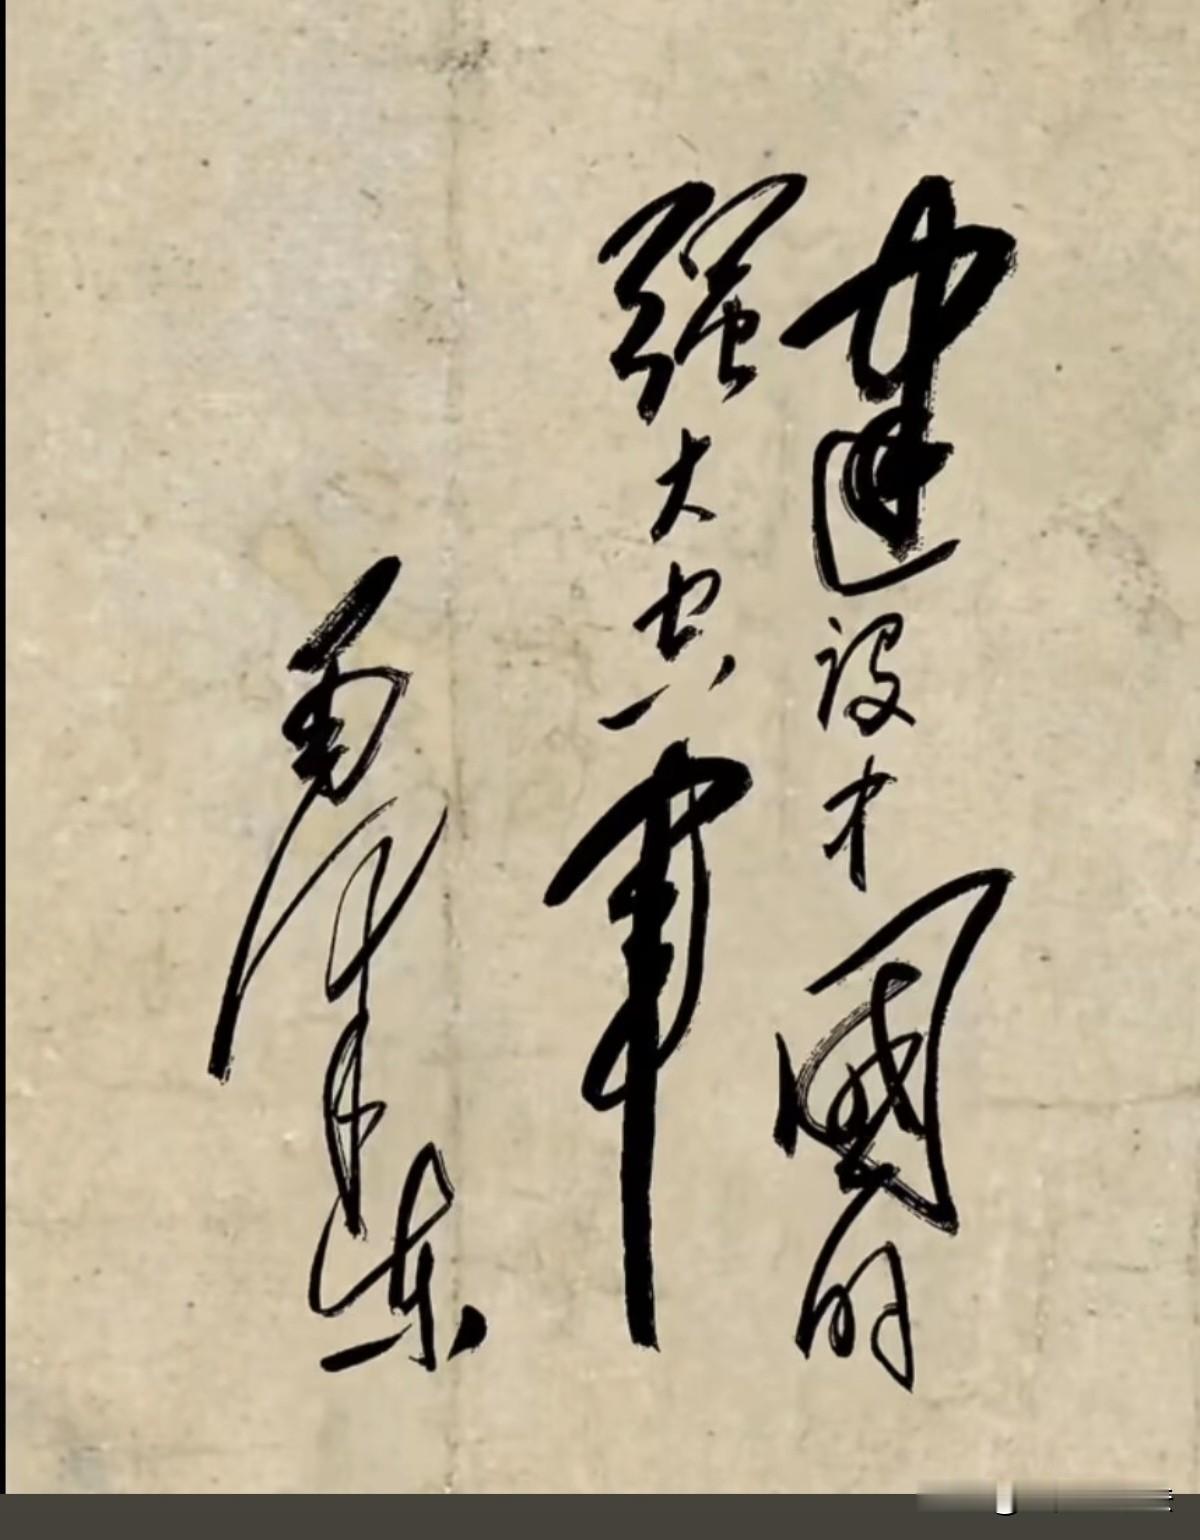 建设中國的
强大军
毛泽东